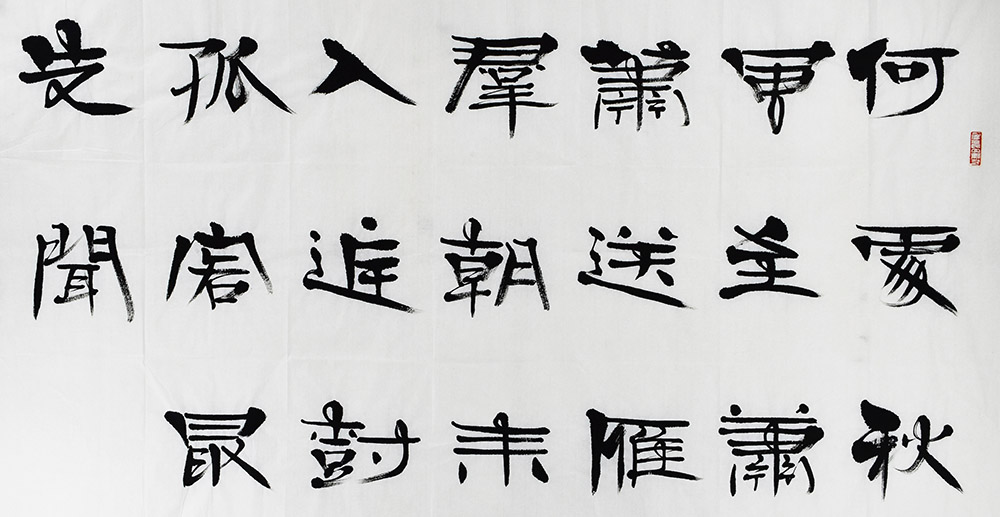 何處秋
風至蕭
蕭送雁
羣朝来
入庭樹
孤客最
先聞